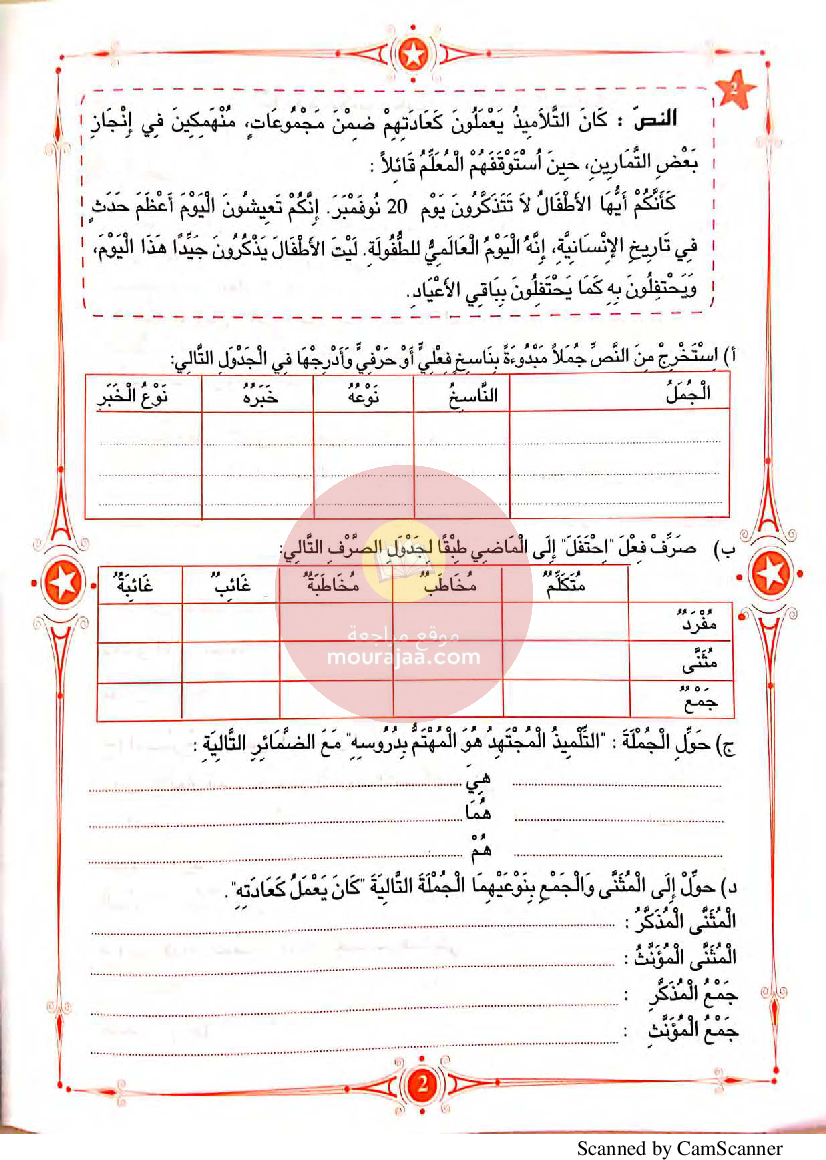 2
النصّ : كَانَ التَّلَامِيذُ يَعْمَلُونَ كَعَادَتِهِمْ ضِمْنَ مَجْمُوعَاتٍ، مُنْهَمِكِينَ فِي إِنْجَازِ
بَعْضِ التَّمَارِينِ، حِينَ اُسْتَوْقَفَهُمْ الْمُعَلِّمُ قَائِلاً :
كَأَنَّكُمْ أَيُّهَا الأَطْفَالُ لاَ تَتَذَكَّرُونَ يَوْمَ 20 نُوفَمْبَرَ. إِنَّكُمْ تَعِيشُونَ الْيَوْمَ أَعْظَمَ حَدَثٍ
فِي تَارِيخِ الإِنْسَانِيَّةِ، إِنَّهُ الْيَوْمُ الْعَالَمِيُّ للطُّفُولَةِ. لَيْتَ الأَطْفَالَ يَذْكُرُونَ جَيِّدًا هَذَا الْيَوْمَ،
وَيَحْتَفِلُونَ بِهِ كَمَا يَحْتَفِلُونَ بِبَاقِي الأَعْيَادِ.
أ) اِسْتَخْرِجْ مِنَ النَّصِّ جُمَلاً مَبْدُوءَةً بِنَاسِخٍ فِعْلِيٍّ أَوْ حَرْفِيٍّ وَأَدْرِجْهَا فِي الْجَدْوَلِ التَّالِي:
الْجُمَلُ النَّاسِخُ نَوْعُهُ خَبَرُهُ نَوْعُ الْخَبَرِ
ب) صَرِّفْ فِعْلَ "اِحْتَفَلَ" إِلَى الْمَاضِي طِبْقًا لِجَدْوَلِ الصَّرْفِ التَّالِي:
مُتَكَلِّمٌ مُخَاطَبٌ مُخَاطَبَةٌ غَائِبٌ غَائِبَةٌ
مُفْرَدٌ
مُثَنَّى
جَمْعٌ
موقع مراجعة
mourajaa.com
ج) حَوِّلِ الْجُمْلَةَ : "التِّلْمِيذُ الْمُجْتَهِدُ هُوَ الْمُهْتَمُّ بِدُرُوسِهِ" مَعَ الضَّمَائِرِ التَّالِيَةِ :
هِيَ
هُمَا
هُمْ
د) حَوِّلْ إِلَى الْمُثَنَّى وَالْجَمْعِ بِنَوْعَيْهِمَا الْجُمْلَةَ التَّالِيَةَ "كَانَ يَعْمَلُ كَعَادَتِهِ".
الْمُثَنَّى الْمُذَكَّرُ :
الْمُثَنَّى الْمُؤَنَّثُ :
جَمْعُ الْمُذَكَّرِ :
جَمْعُ الْمُؤَنَّثِ :
2
Scanned by CamScanner